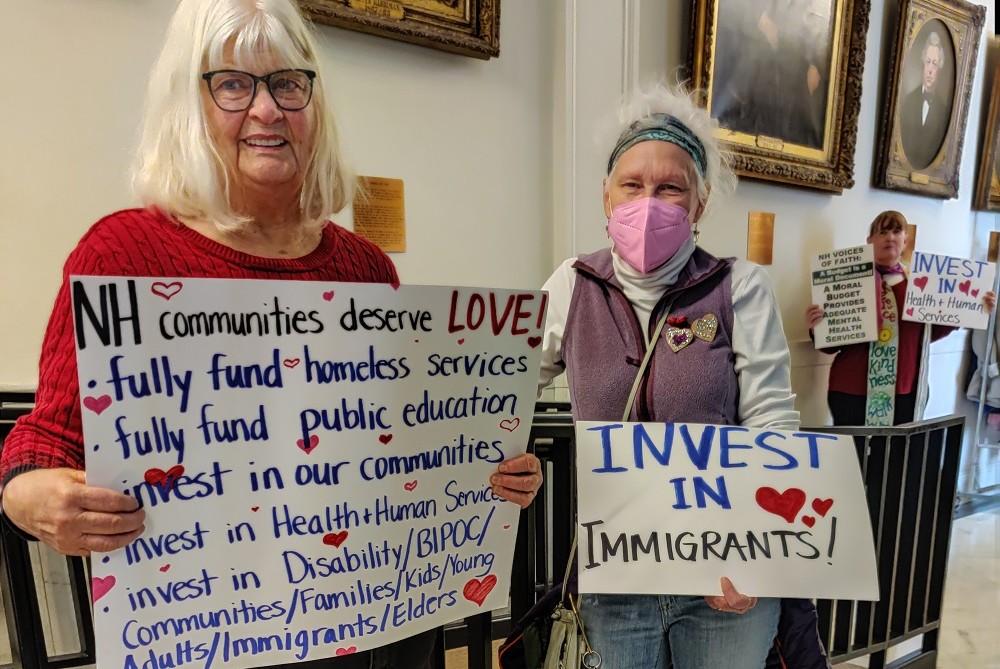 NH communities deserve LOVE!
• fully fund homeless services
• fully fund public education
• invest in our communities
• invest in Health + Human Services
• invest in Disability/BIPOC/
Communities/Families/Kids/Young
Adults/Immigrants/Elders
INVEST
IN
IMMIGRANTS!
NH VOICES
OF FAITH:
A Budget is a
Moral Document
A MORAL
BUDGET
PROVIDES
ADEQUATE
MENTAL
HEALTH
SERVICES
INVEST
IN
Health + Human
Services
Love
kind
ness